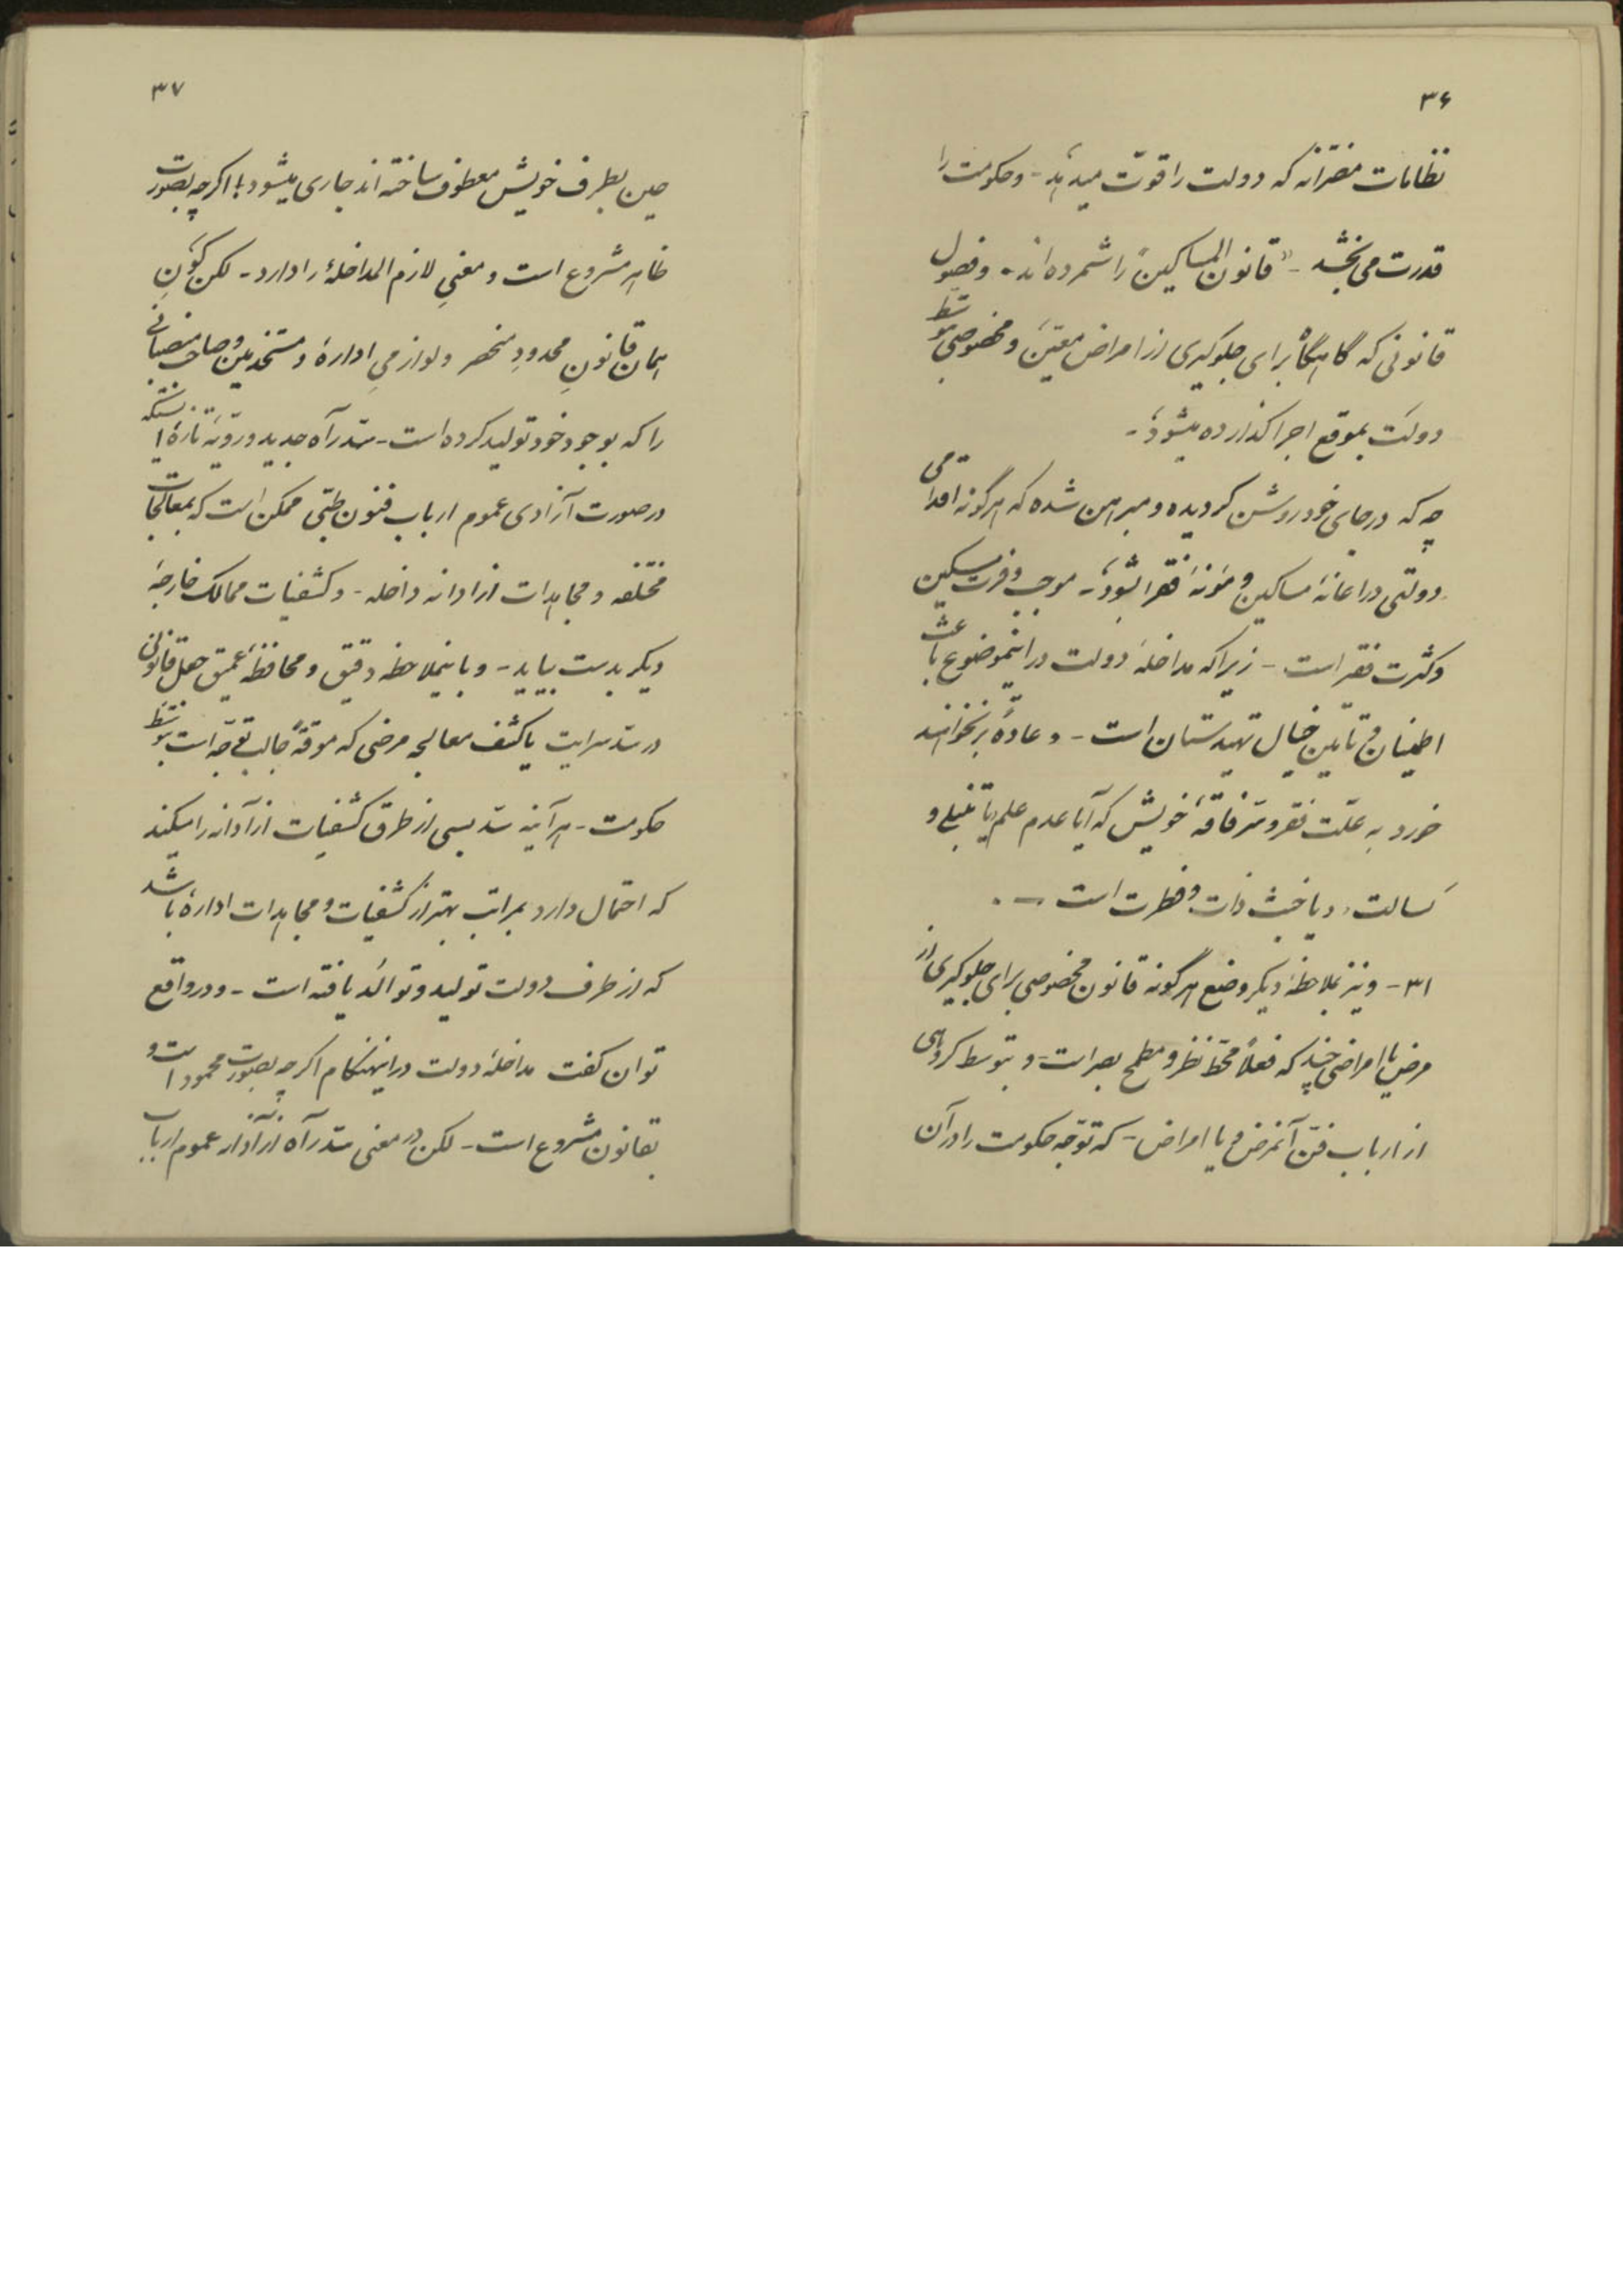 ۳۶
نظامات مقننانه که دولت را قوّت میدهد - و حکومت را
قدرت می بخشد - «قانون المساکین» را شمرده‌اند. و فصول
قانونی که گاهگاه برای جلوکیری از امراض معیّن و مخصوصی بتوسط
دولت بموقع اجرا گذارده میشود. -
چه که در جای خود روشن کردیده و مبرهن شده که هرگونه اقدامی
دولتی در اعانهٔ مساکین و مؤنهٔ فقرا بشود - موجب وفرت مسکین
و کثرت فقر است - زیرا که مداخلهٔ دولت در اینموضوع باعث
اطمینان و تأمین خیال تهیدستان است - و عادةً برنخواهند
خورد به علّت فقر و فاقهٔ خویش که آیا عدم علم یا تنبلی و
کسالت، و یا خبث ذات و فطرت است - .
۳۱ - و نیز بملاحظهٔ دیکر وضع هرگونه قانون مخصوصی برای جلوکیری از
مرض یا امراضی چند که فعلاً محطّ نظر و مطمح بصر است - و بتوسط کروهی
از ارباب فنّ آنمرض و یا امراض - که توّجه حکومت را در آن
۳۷
حین بطرف خویش معطوف ساخته اند جاری میشود؛ اکرچه بصورت
ظاهر مشروع است و معنیِ لازم المداخلهٔ را دارد - لکن کَونِ
همان قانونِ محدودِ منحصر و لوازمیِ ادارهٔ و مستخدمین و صاحب منصبانی
را که بوجود خود تولید کرده است - سّد راه جدید و رویّه تازهٔ ایستکه
در صورت آزادی عموم ارباب فنون طبّی ممکن است که بمعالجات
مختلفه و مجاهدات ازادانه داخله - و کشفیات ممالک خارجهٔ
دیکر بدست بیاید - و باینملاحظه دقیق و محافظهٔ عمیق جعل قانونی
در سّد سرایت یا کشف معالجه مرضی که موقةً جالب توّجه است بتوسط
حکومت - هرآینه سّد بسی از طرق کشفیات ازآدانه را میکند
که احتمال دارد بمراتب بهتر از کشفیات و مجاهدات ادارهٔ باشد
که از طرف دولت تولید و توالد یافته است - و در واقع
توان کفت مداخلهٔ دولت در اینهنکام اکرچه بصورت محمود است و
بقانون مشروع است - لکن در معنی سّد راه ازآدانه عموم ارباب